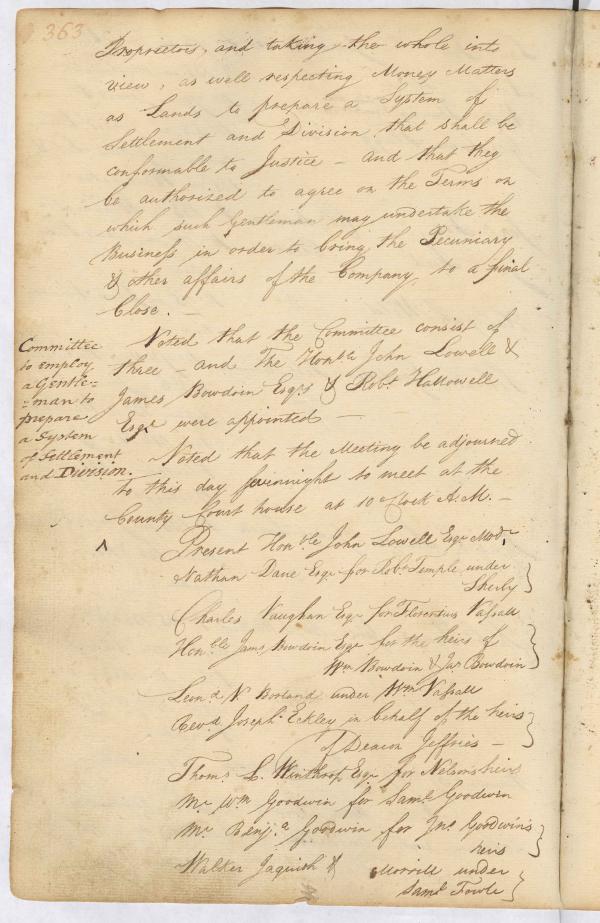 363
Proprietors, and taking the whole into
view, as well respecting Money Matters
as Lands to prepare a System of
Settlement and Division, that shall be
conformable to Justice – and that they
be authorized to agree on the Terms on
which such Gentleman may undertake the
Business in order to bring the Pecuniary
& other affairs of the Company, to a final
Close. –
Committee
to employ
a Gentle=
=man to
prepare
a System
of Settlement
and Division.
Voted that the Committee consist of
three – and The Honble John Lowell &
James Bowdoin Esqrs & Robt Hallowell
Esqr were appointed –
Voted that the Meeting be adjourned
to this day forinight to meet at the
County Court house at 10 oClock A.M. –
^ Present Honble John Lowell Esqr Modr
Nathan Dane Esqr for Robt Temple under
Shirly
Charles Vaughan Esqr for Florentius Vassall
Honble Jams Bowdoin Esqr for the heirs of
Wm Bowdoin & Jas Bowdoin
Leond V. Borland under Wm Vassall
Revd Joseph Eckley in behalf of the heirs
of Deacon Jeffries –
Thoms L. Winthrop Esqr for Nelsons heirs
Mr Wm Goodwin for Saml Goodwin
Mr Benja Goodwin for Jno Goodwin's
heirs
Walter Jaquish & Morrill under
Saml Fowle